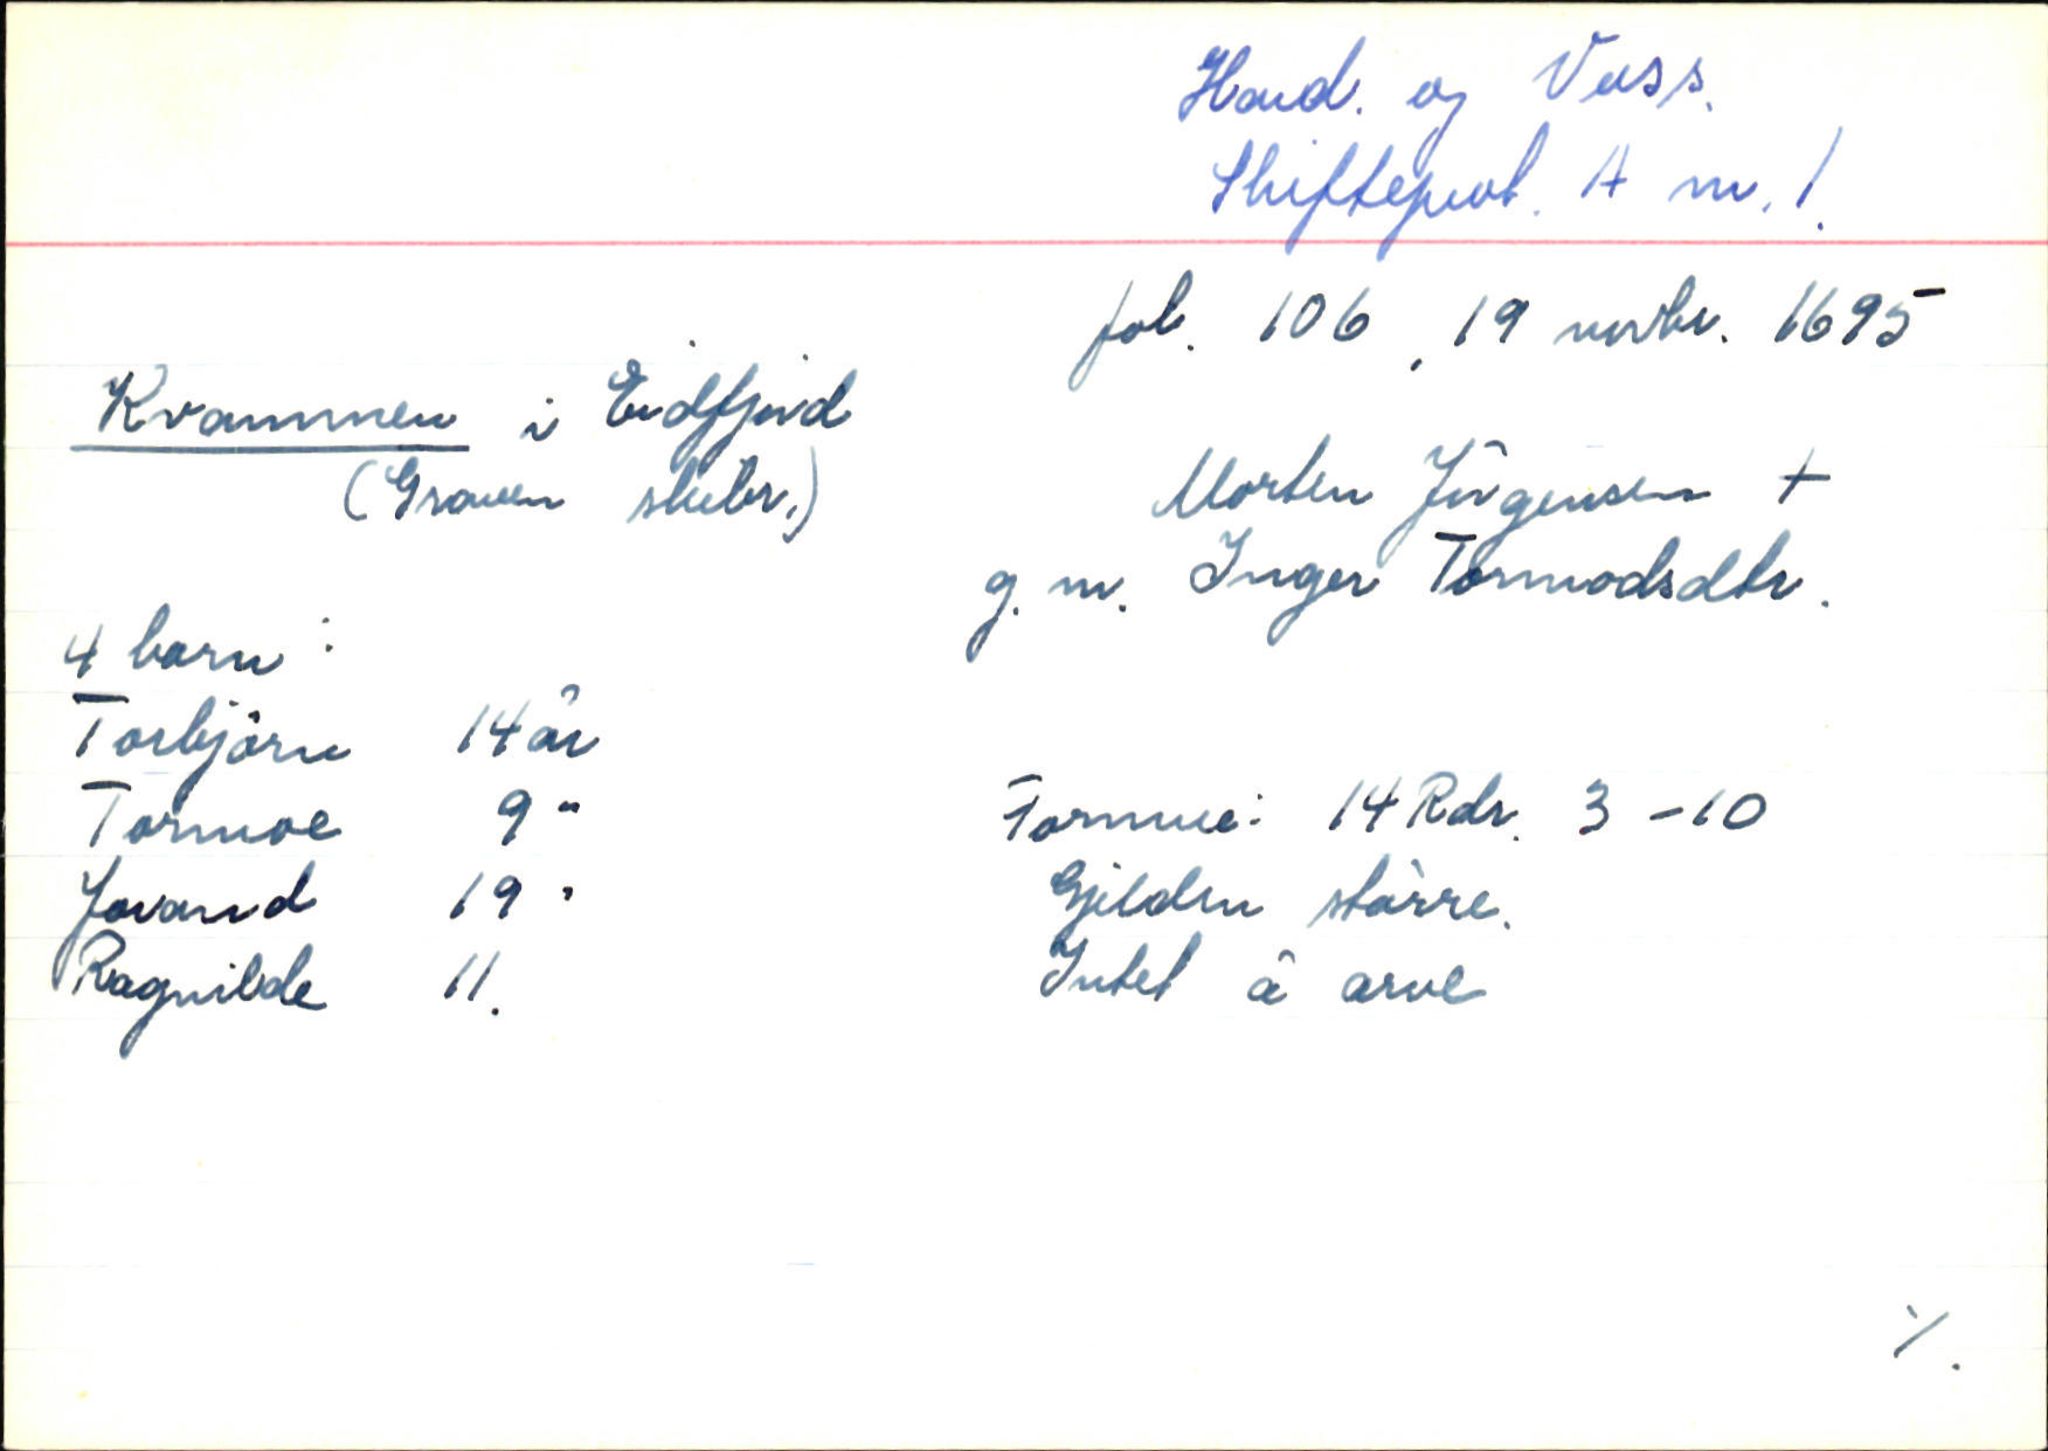 Hard. og Voss.
Skifteprot. A nr. 1.
fol. 106, 19 novbr. 1695
Kvammen i Eidfjord
(Graven skibr.)
Morten Jörgensen +
g. m. Inger Tormodsdtr.
4 barn:
Torbjörn 14 år
Tormoe 9 "
Jorand 19 "
Ragnilde 11.
Formue: 14 Rdr. 3 - 10
Gjelden större.
Intet å arve